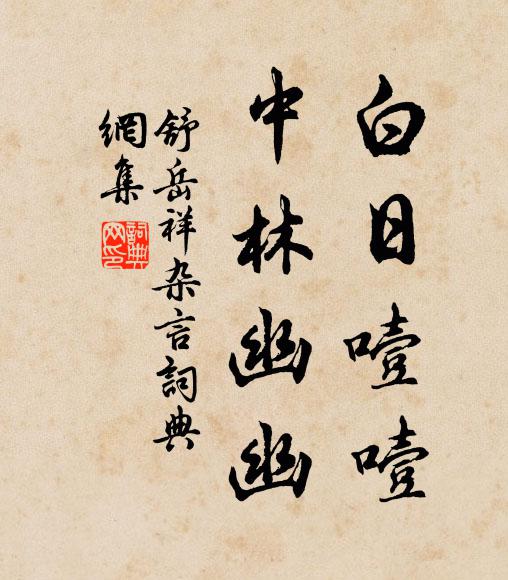 白日噎噎
中林幽幽
舒岳祥杂言詞典
網集
詞典
网印